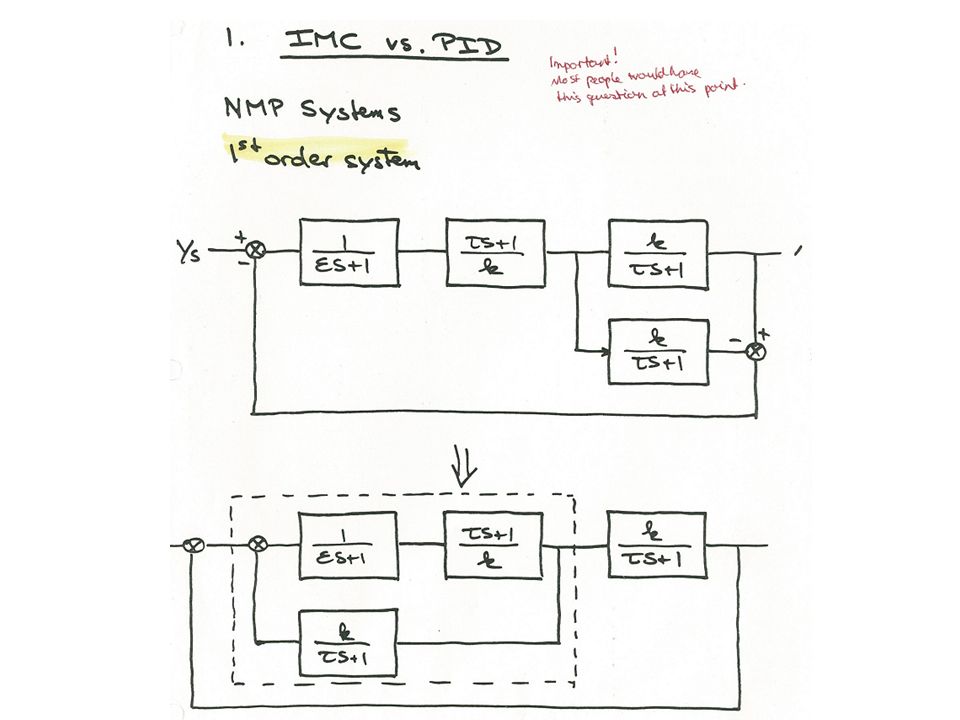 1. IMC vs. PID
Important!
Most people would have
this question at this point.
NMP Systems
1st order system
Ys
+
-
1
εs+1
τs+1
k
k
τs+1
k
τs+1
-
+
⇓
1
εs+1
τs+1
k
k
τs+1
k
τs+1